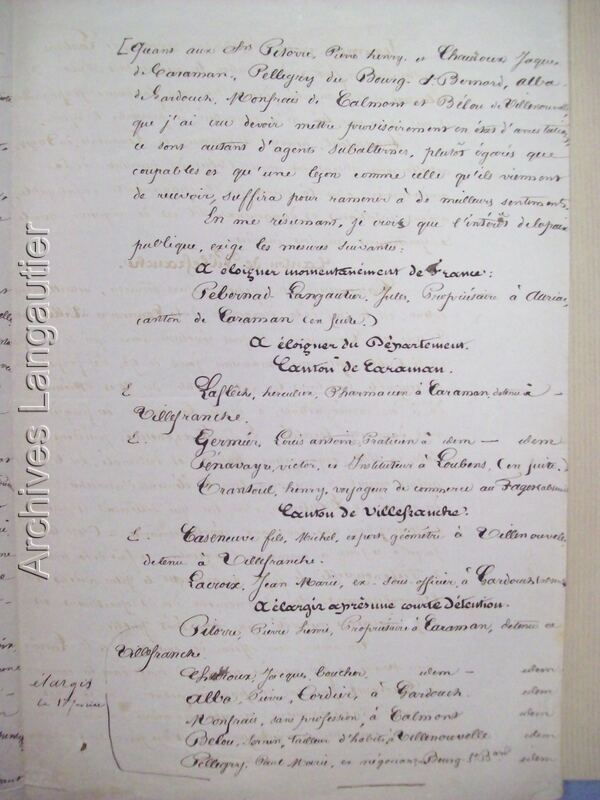 [Quant aux Srs Pitorre, Pierre henry, et Chaudoux Jaques
de Caraman, Pellegry du Bourg St Bernard, alba
de Gardouch, Monfrais de Calmont et Bélou de Villenouvelle
que j'ai cru devoir mettre provisoirement en état d'arrestation,
ce sont autant d'agents subalternes, plutôt égarés que
coupables et qu'une leçon comme celle qu'ils viennent
de recevoir, suffira pour ramener à de meilleurs sentiments.
En me résumant, je crois que l'intérêt de la paix
publique, exige les mesures suivantes:
A éloigner momentanément de France:
Pebernad Langautier, Jules, Propriétaire à Auriac,
canton de Caraman (en fuite.)
A éloigner du Département.
Canton de Caraman.
Hercules, Pharmacien à Caraman, détenu à
Villefranche.
Germier, Louis antoine, Praticien à idem — idem
Pénavayre, victor, ex Instituteur à Loubens, (en fuite.)
henry, voyageur de commerce au
Canton de Villefranche.
Caseneuve fils, Michel, expert géomètre à Villenouvelle,
détenu à Villefranche.
Lacroix, Jean Marie, ex-sous officier, à Gardouch,
A élargir après une courte détention.
Pitorre, Pierre henri, Propriétaire à Caraman, détenu à
Villefranche
Jacques, Boucher, idem — idem
alba, Pierre, Cordier, à Gardouch idem
Monfrais, sans profession, à Calmont idem
Bélou, tailleur d'habits, à Villenouvelle idem
Pellegry, Paul Marie, ex négociant, Bourg St Bard idem
élargis
le 17 Janvier
Archives Langautier